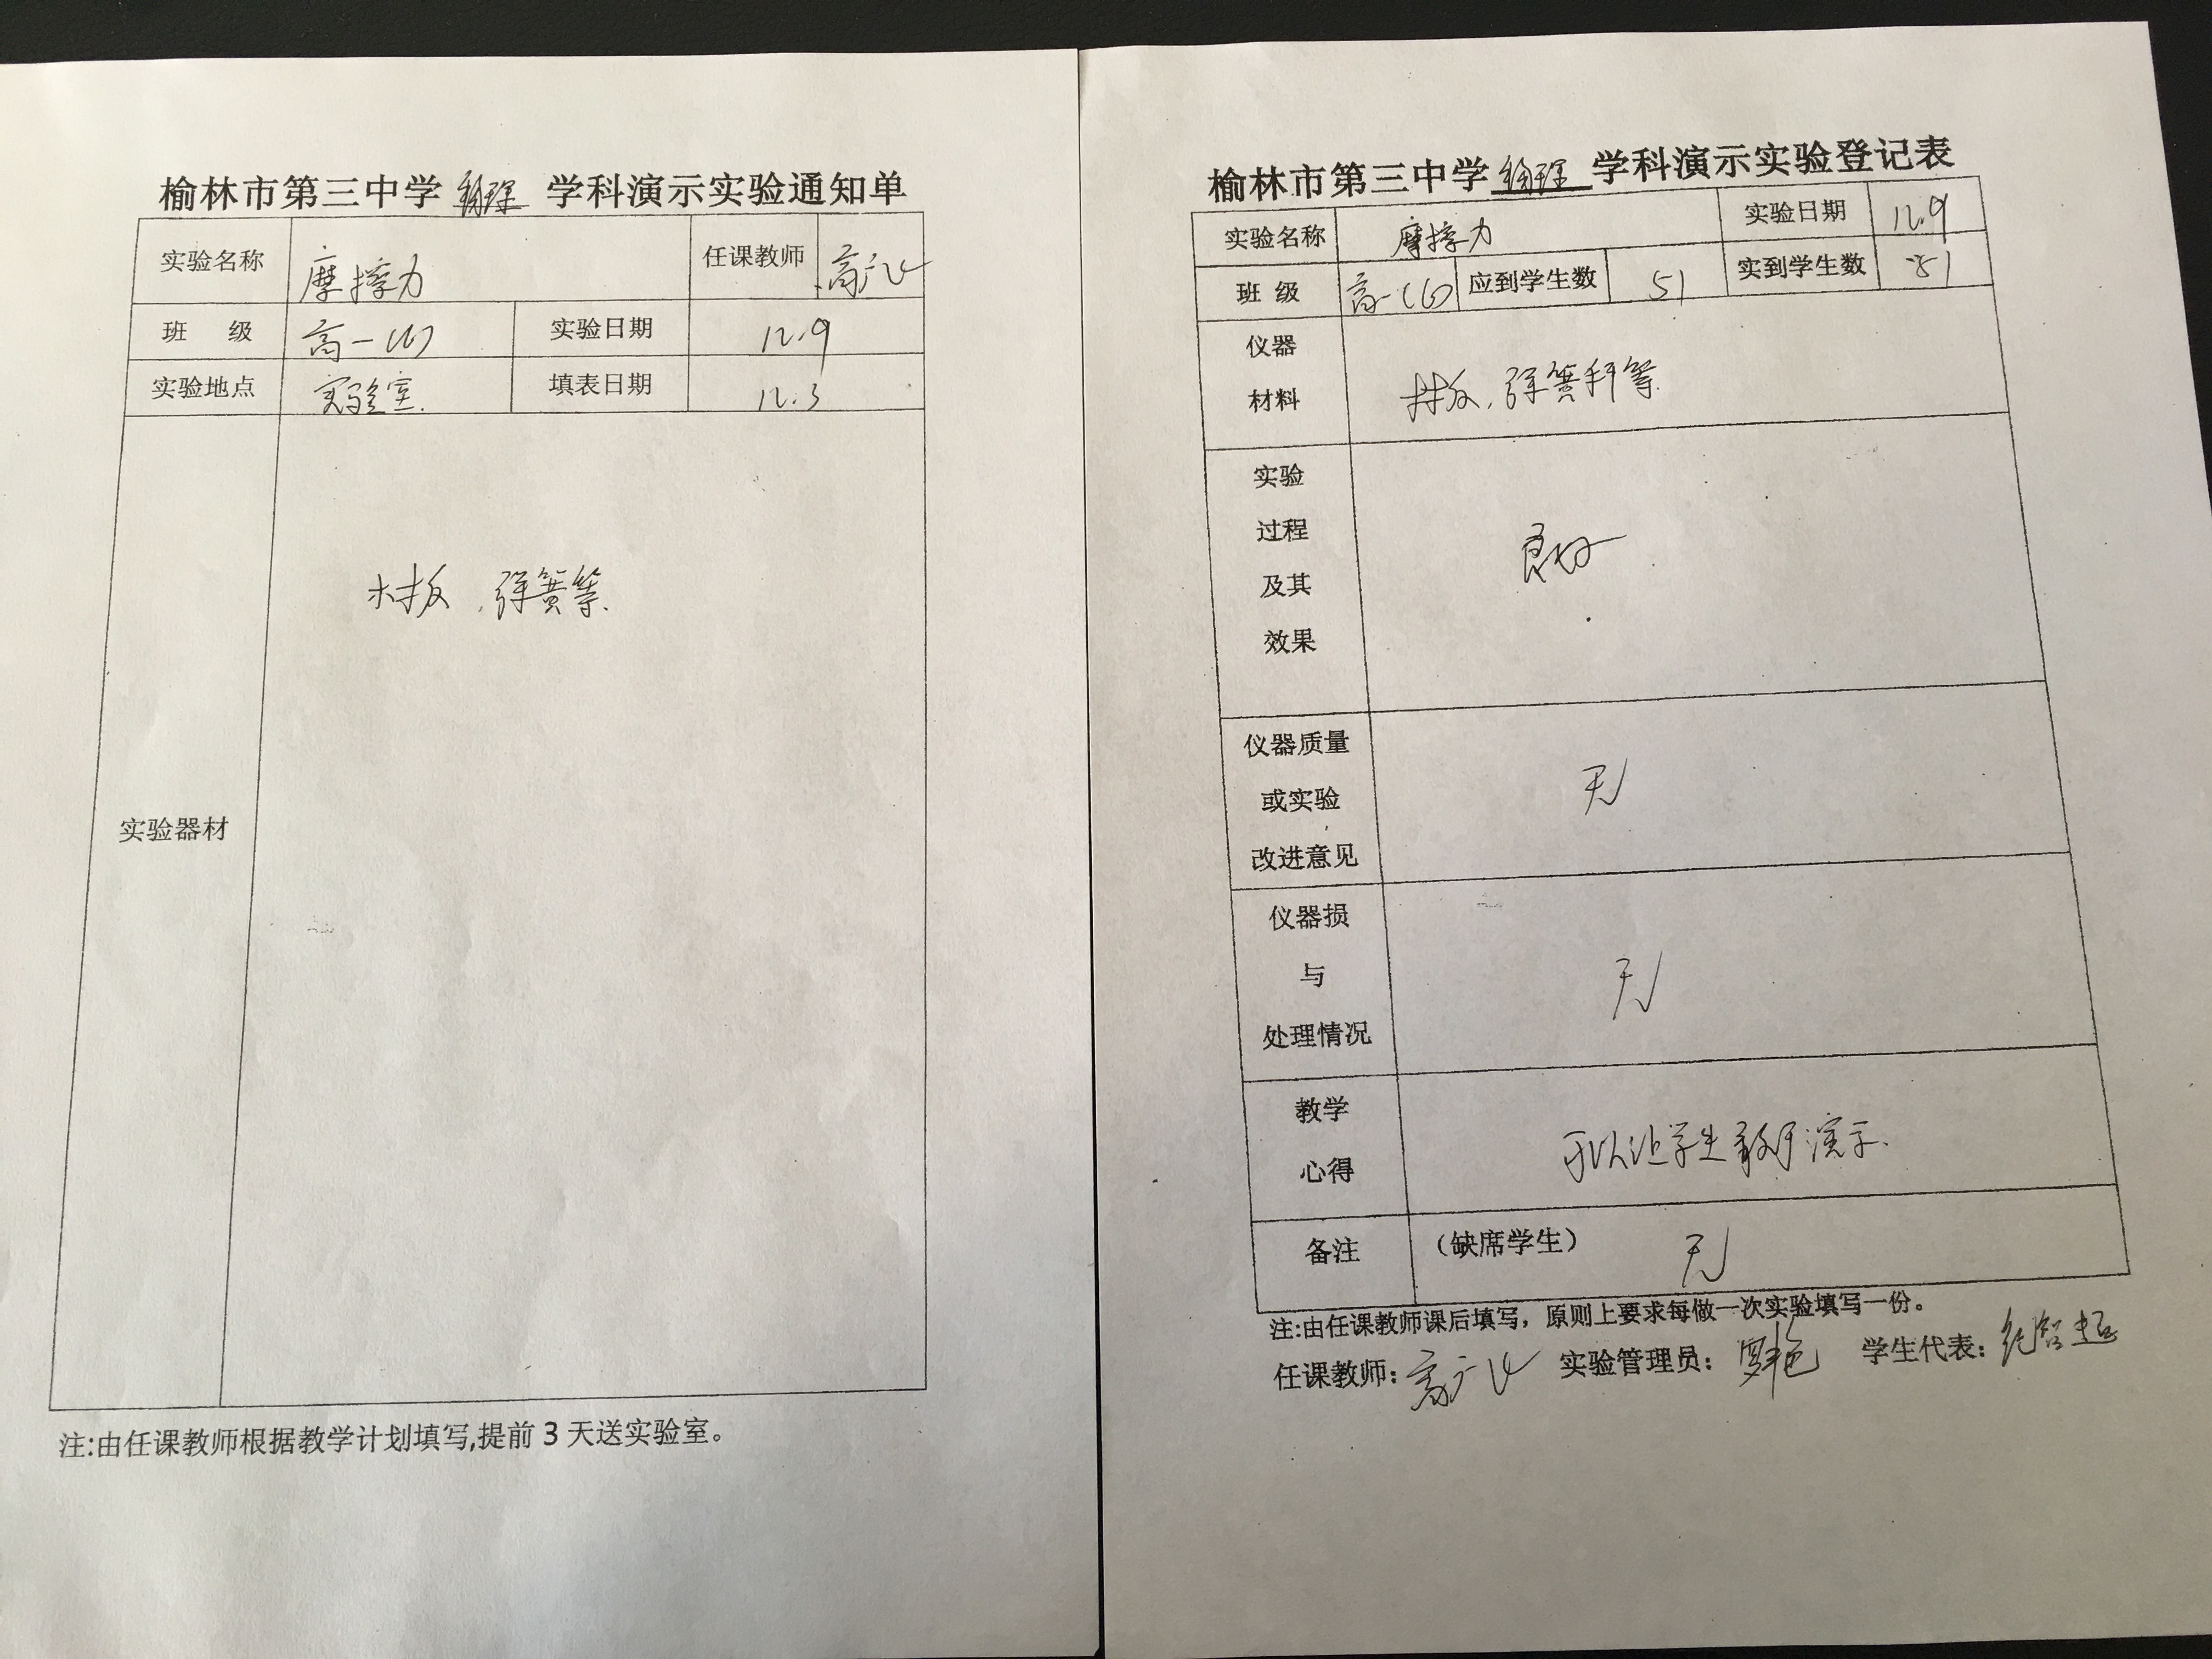 榆林市第三中学 物理 学科演示实验通知单
实验名称 摩擦力 任课教师 高广飞
班 级 高一(6) 实验日期 12.9
实验地点 实验室. 填表日期 12.3
实验器材 木板、弹簧等.
注:由任课教师根据教学计划填写,提前3天送实验室。
榆林市第三中学 物理 学科演示实验登记表
实验名称 摩擦力 实验日期 12.9
班 级 高一(6) 应到学生数 51 实到学生数 51
仪器
材料
木板、弹簧秤等.
实验
过程
及其
效果
良好
仪器质量
或实验
改进意见
无
仪器损
与
处理情况
无
教学
心得
可以让学生亲手演示.
备注 (缺席学生) 无
注:由任课教师课后填写,原则上要求每做一次实验填写一份。
任课教师: 实验管理员: 学生代表: